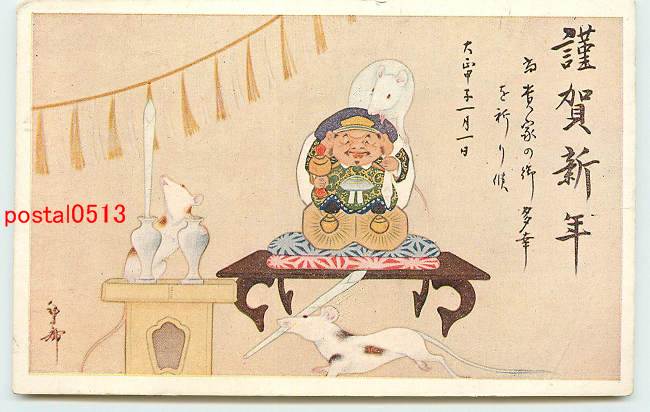 謹賀新年
尚貴家の御多幸
を祈り候
大正甲子一月一日
postal0513